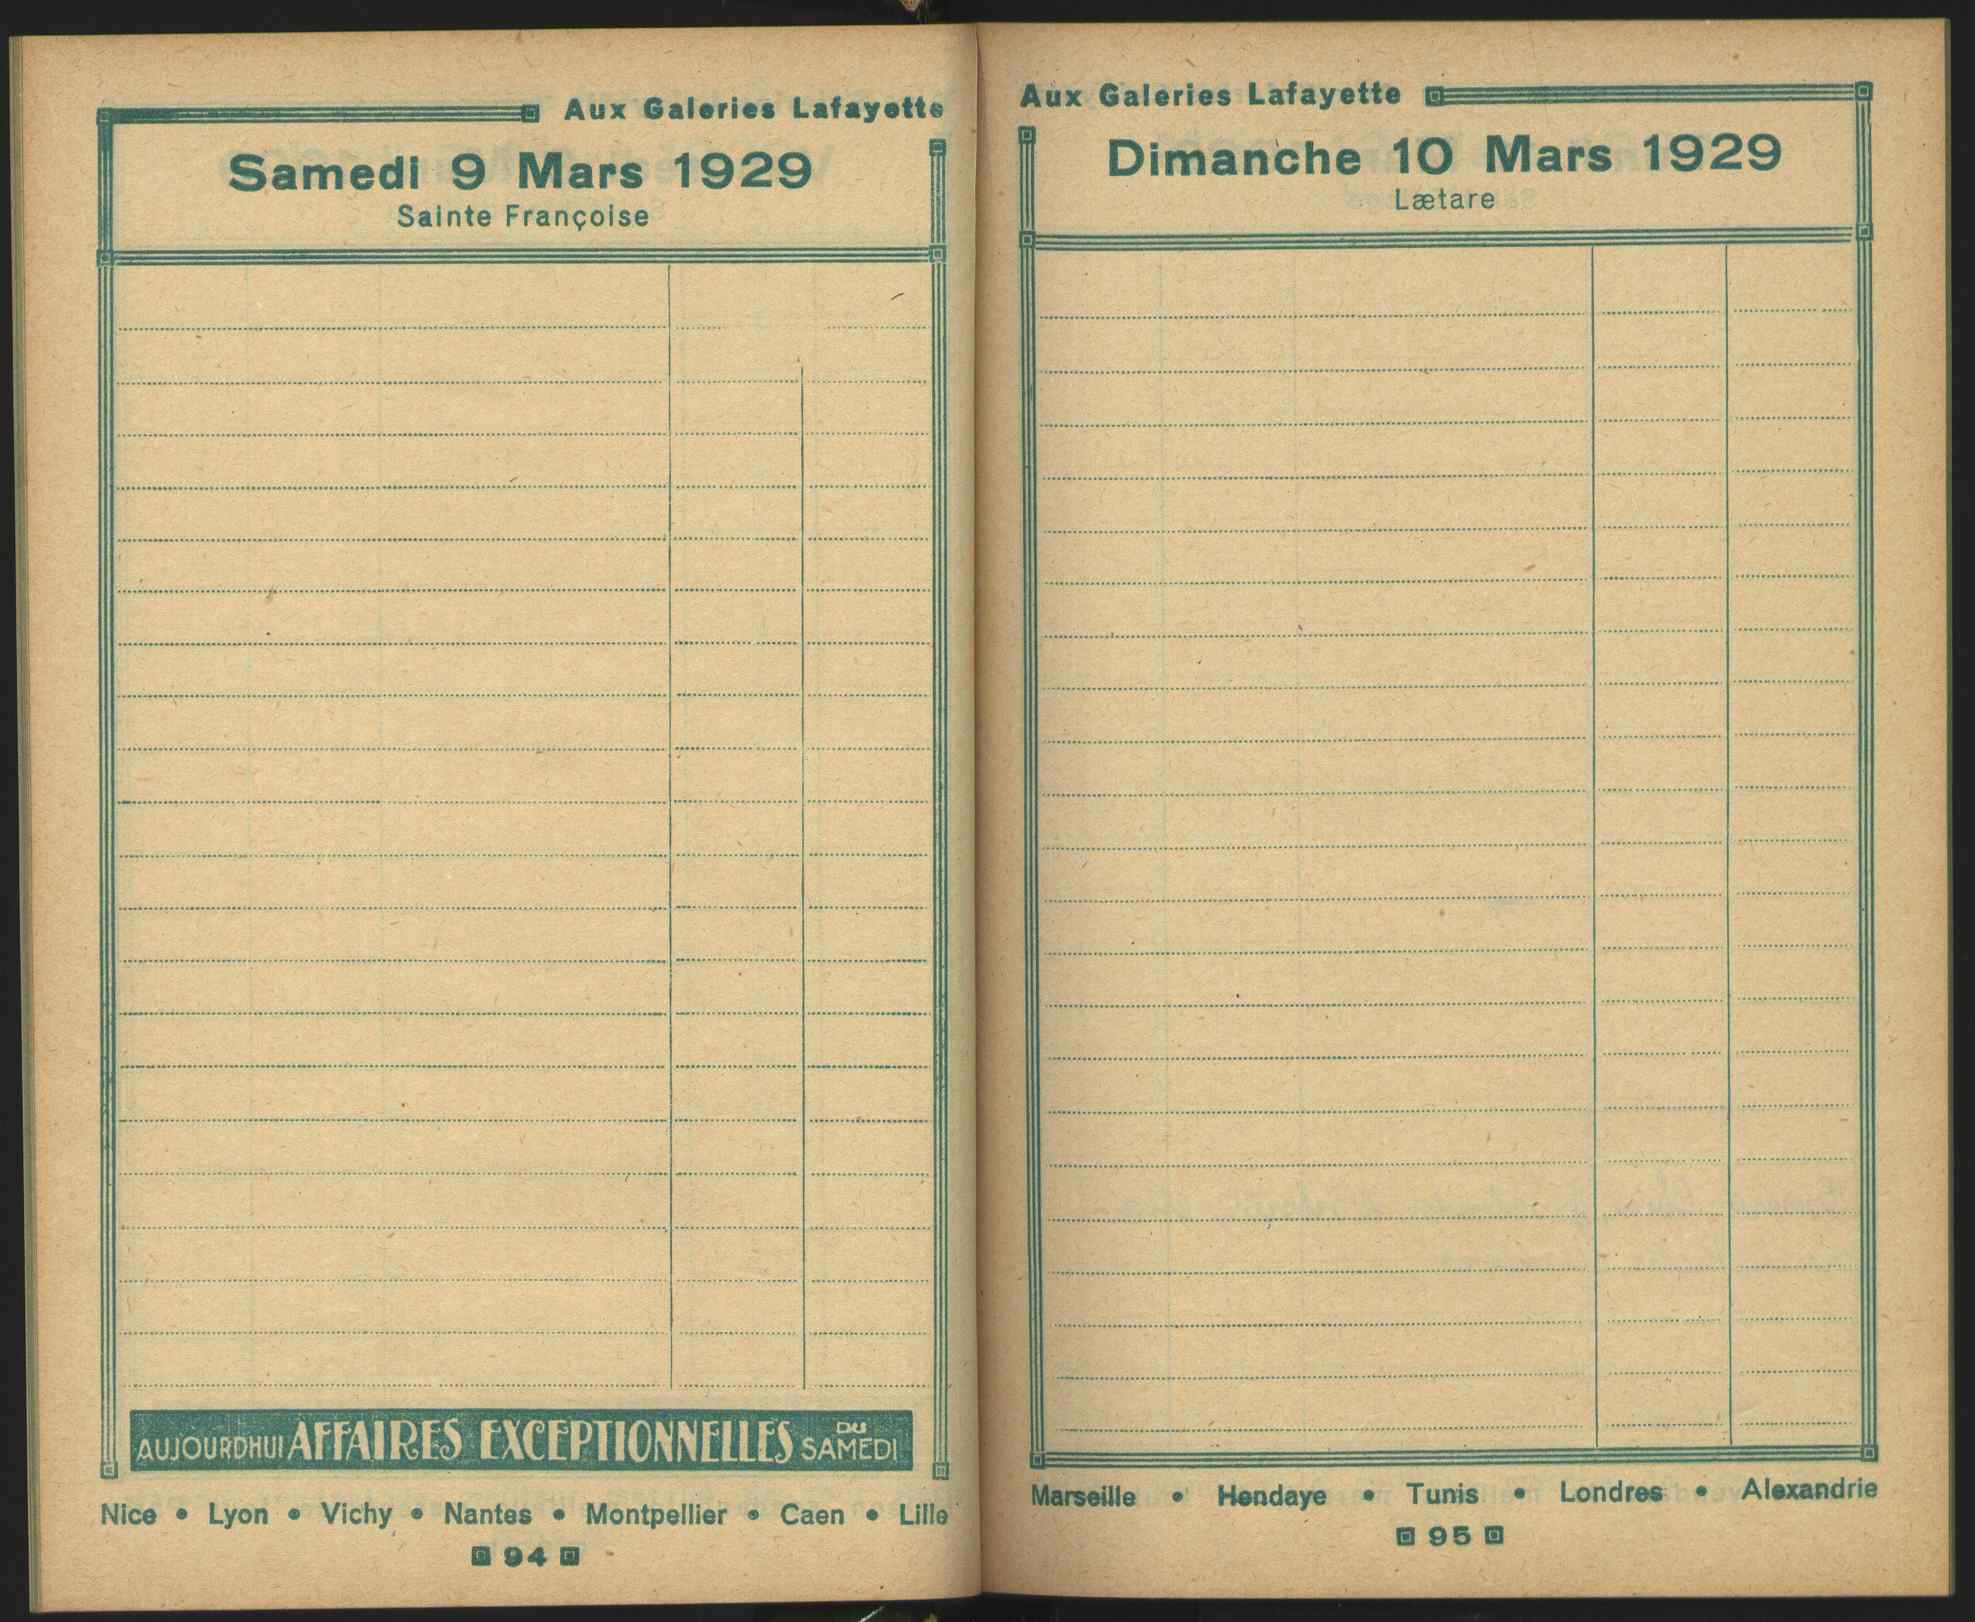 Aux Galeries Lafayette
Samedi 9 Mars 1929
Sainte Françoise
AUJOURDHUI AFFAIRES EXCEPTIONNELLES DU SAMEDI
Nice • Lyon • Vichy • Nantes • Montpellier • Caen • Lille
94
Aux Galeries Lafayette
Dimanche 10 Mars 1929
Lætare
Marseille • Hendaye • Tunis • Londres • Alexandrie
95